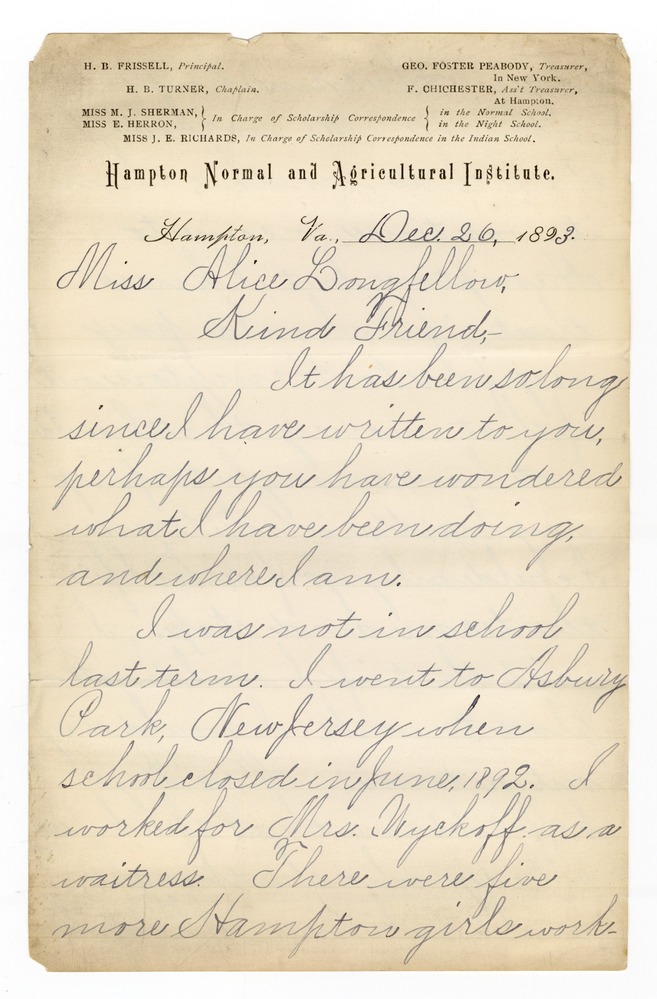 H. B. FRISSELL, Principal.
H. B. TURNER, Chaplain.
GEO. FOSTER PEABODY, Treasurer,
In New York.
F. CHICHESTER, Ass't Treasurer,
At Hampton.
MISS M. J. SHERMAN,
MISS E. HERRON,
In Charge of Scholarship Correspondence
in the Normal School.
in the Night School.
MISS J. E. RICHARDS, In Charge of Scholarship Correspondence in the Indian School.
Hampton Normal and Agricultural Institute.
Hampton, Va., Dec. 26, 1893.
Miss Alice Longfellow,
Kind Friend,-
It has been so long
since I have written to you,
perhaps you have wondered
what I have been doing,
and where I am.
I was not in school
last term. I went to Asbury
Park, New Jersey when
school closed in June, 1892. I
worked for Mrs. Wyckoff as a
waitress. There were five
more Hampton girls work-